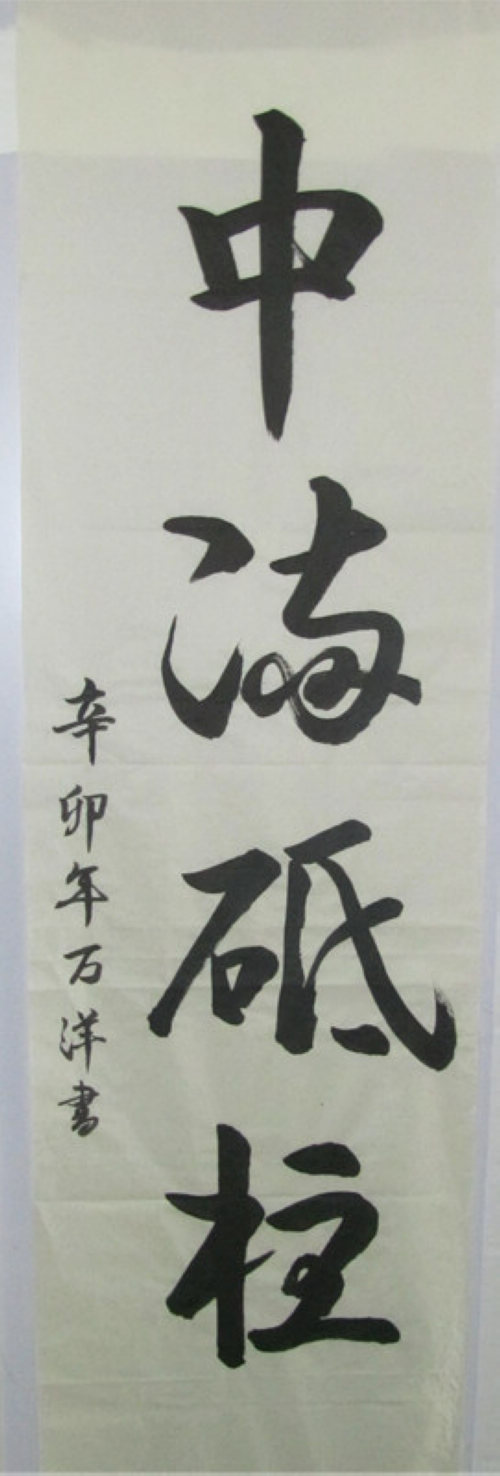 中流砥柱
辛卯年万洋書